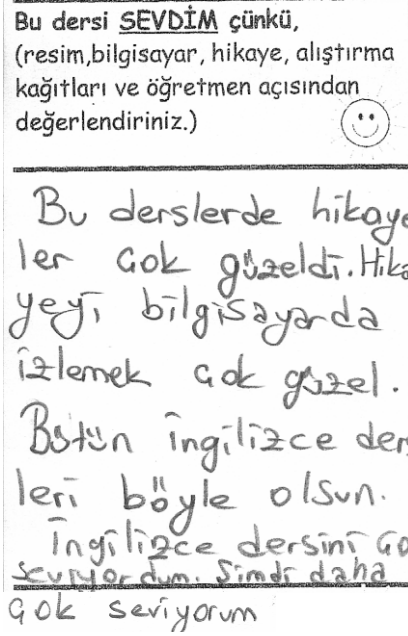 Bu dersi SEVDİM çünkü,
(resim,bilgisayar, hikaye, alıştırma
kağıtları ve öğretmen açısından
değerlendiriniz.)
Bu derslerde hikaye
ler çok güzeldi. Hika
yeyi bilgisayarda
izlemek çok güzel.
Bütün ingilizce ders
leri böyle olsun.
İngilizce dersini ço
seviyordum. Şimdi daha
çok seviyorum